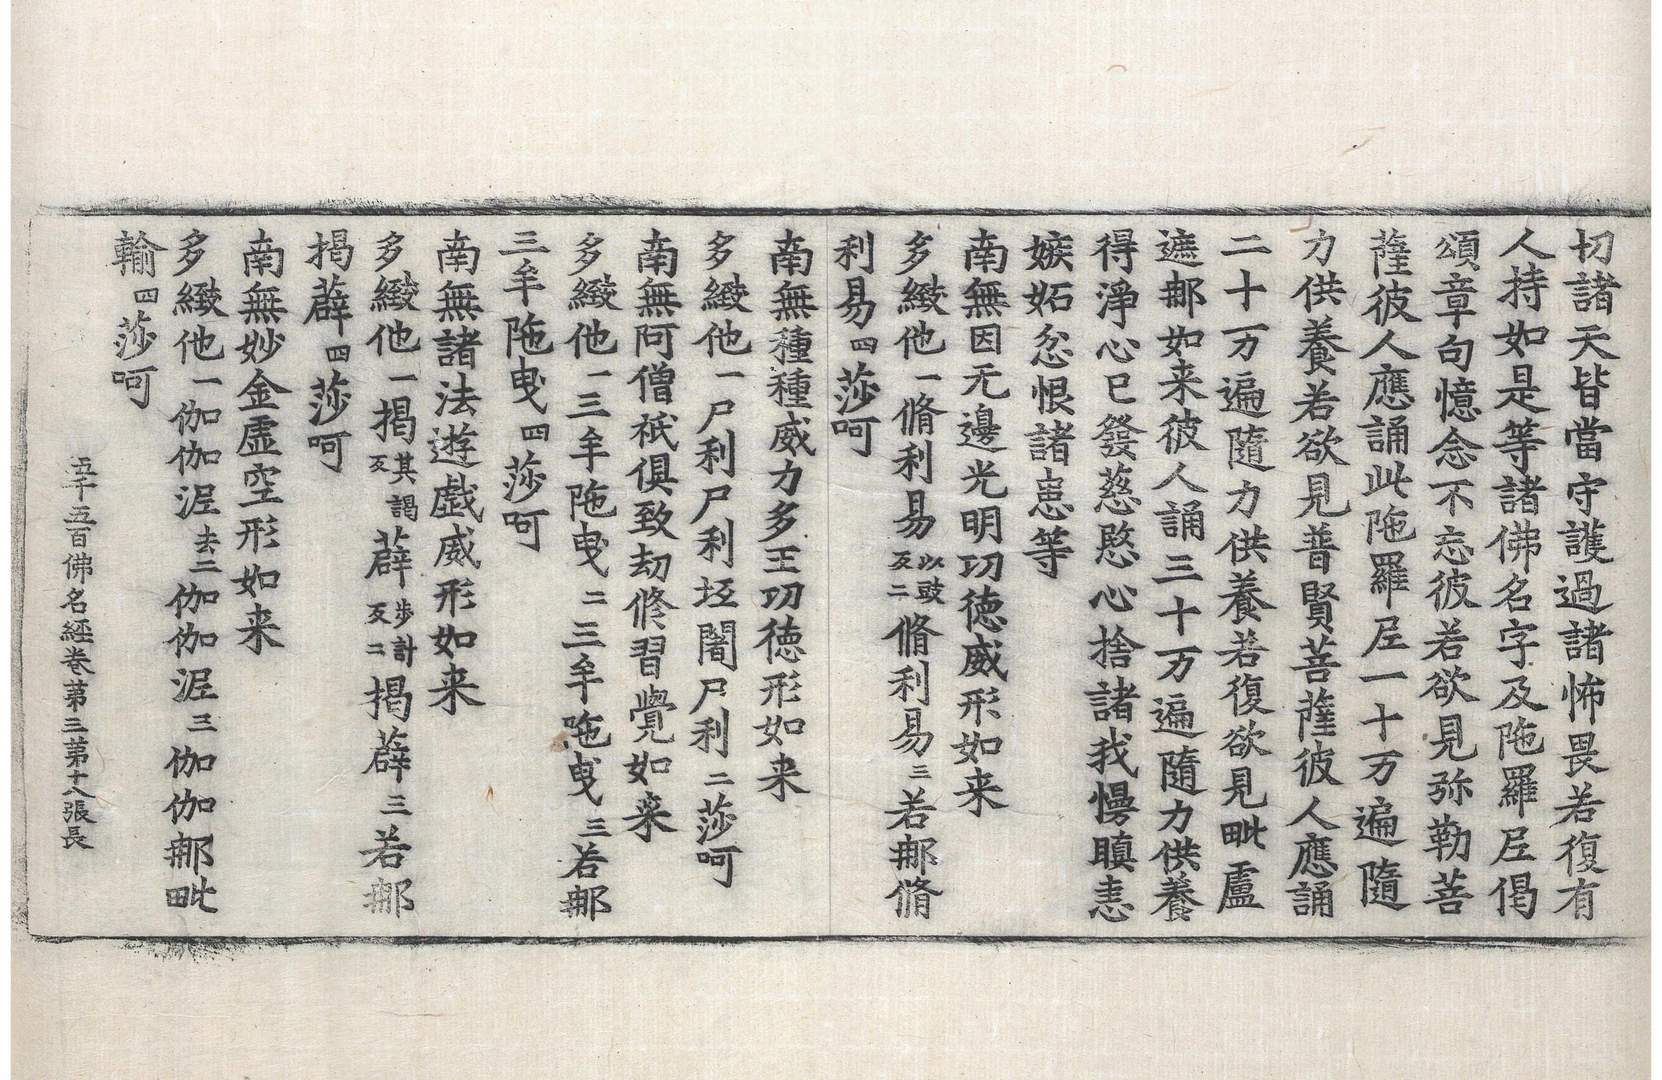 切諸天皆當守護過諸怖畏若復有
人持如是等諸佛名字及陁羅尼偈
頌章句憶念不忘彼若欲見弥勒菩
薩彼人應誦此陁羅尼一十万遍隨
力供養若欲見普賢菩薩彼人應誦
二十万遍隨力供養若復欲見毗盧
遮郍如来彼人誦三十万遍隨力供養
得淨心已發慈愍心捨諸我慢瞋恚
嫉妬忿恨諸恚等
南無因无邊光明功德威形如来
多緻他一脩利易以豉反二脩利易三若郍脩
利易四莎呵
南無種種威力多王功德形如来
多緻他一尸利尸利坘闍尸利二莎呵
南無阿僧祇俱致劫修習覺如来
多緻他一三牟陁曳二三牟陁曳三若郍
三牟陁曳四莎呵
南無諸法遊戲威形如来
多緻他一揭其謁反薜步計反二揭薜三若郍
揭薜四莎呵
南無妙金虛空形如来
多緻他一伽伽泥去二伽伽泥三伽伽郍毗
輸四莎呵
五千五百佛名經卷第三第十八張長